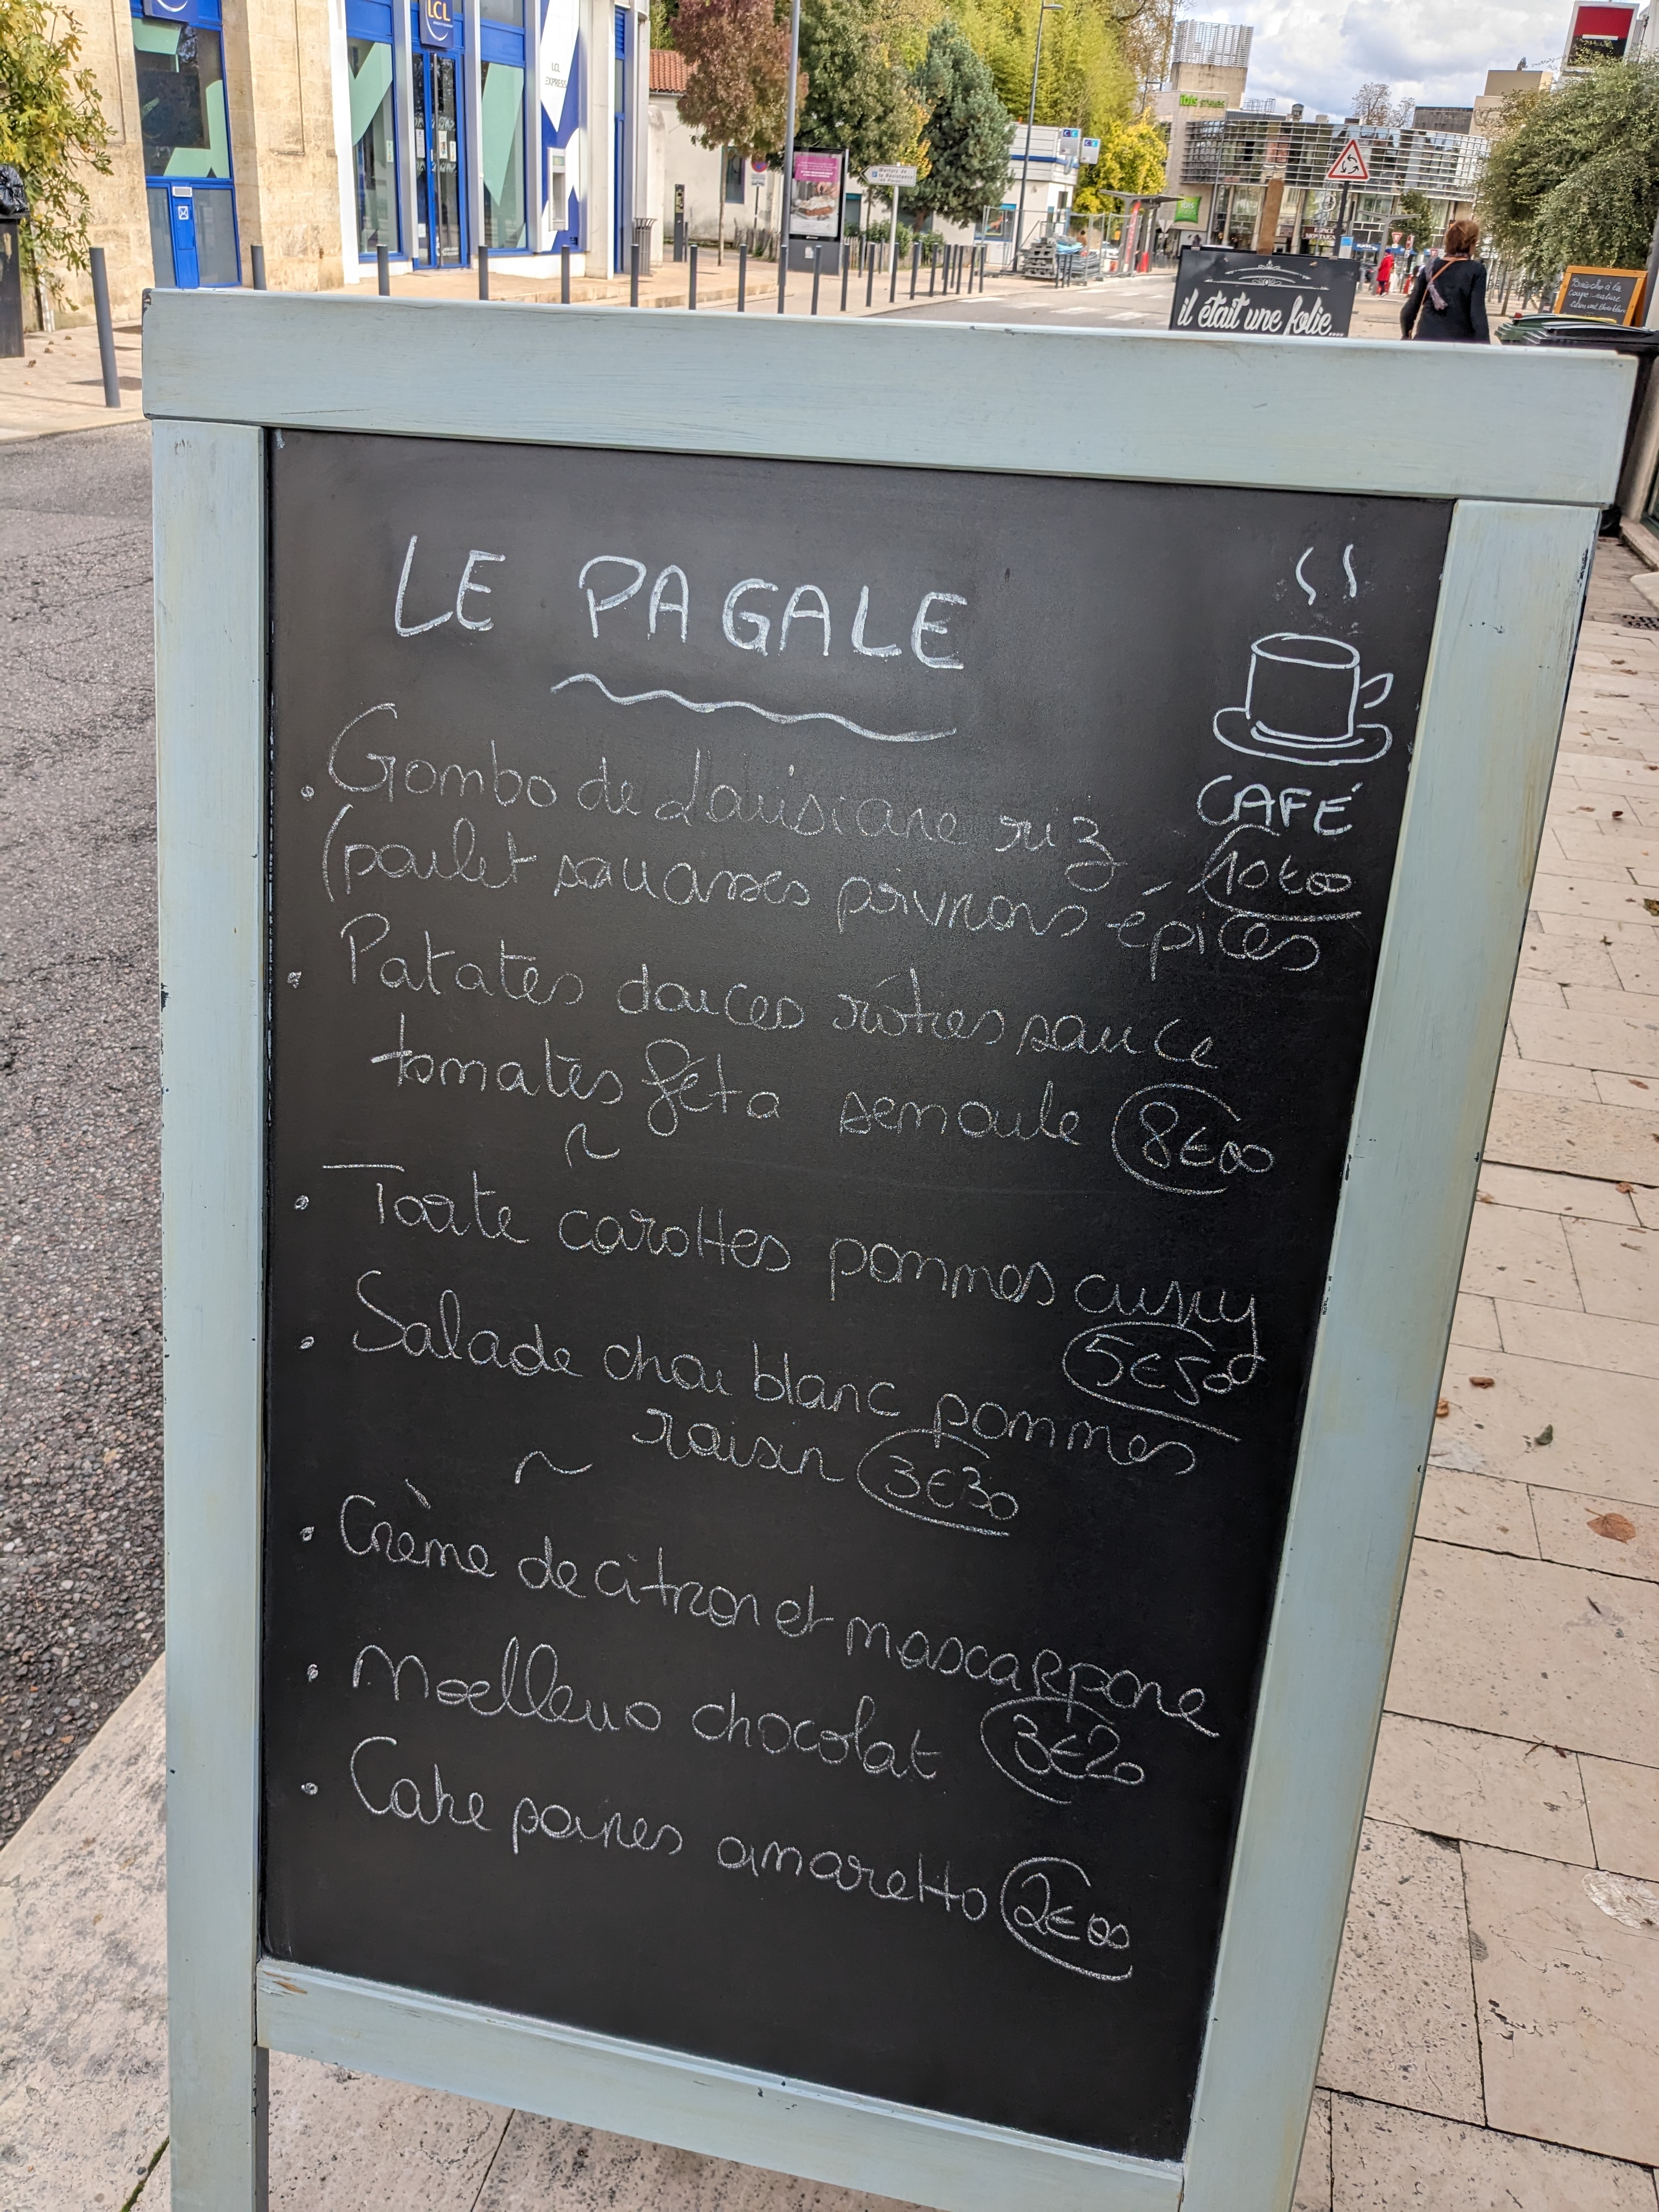 LCL
LCL
EXPRESS
ibis STYLES
il était une folie...
LE PAGALE
CAFÉ
• Gombo de Louisiane riz 10€00
(poulet saucisses poivrons épices
• Patates douces rôties sauce
tomates féta semoule 8€00
~
• Tourte carottes pommes curry
5€50
• Salade chou blanc pommes
raisin 3€30
~
• Crème de citron et mascarpone
• Moelleux chocolat 3€20
• Cake poires amaretto 2€00